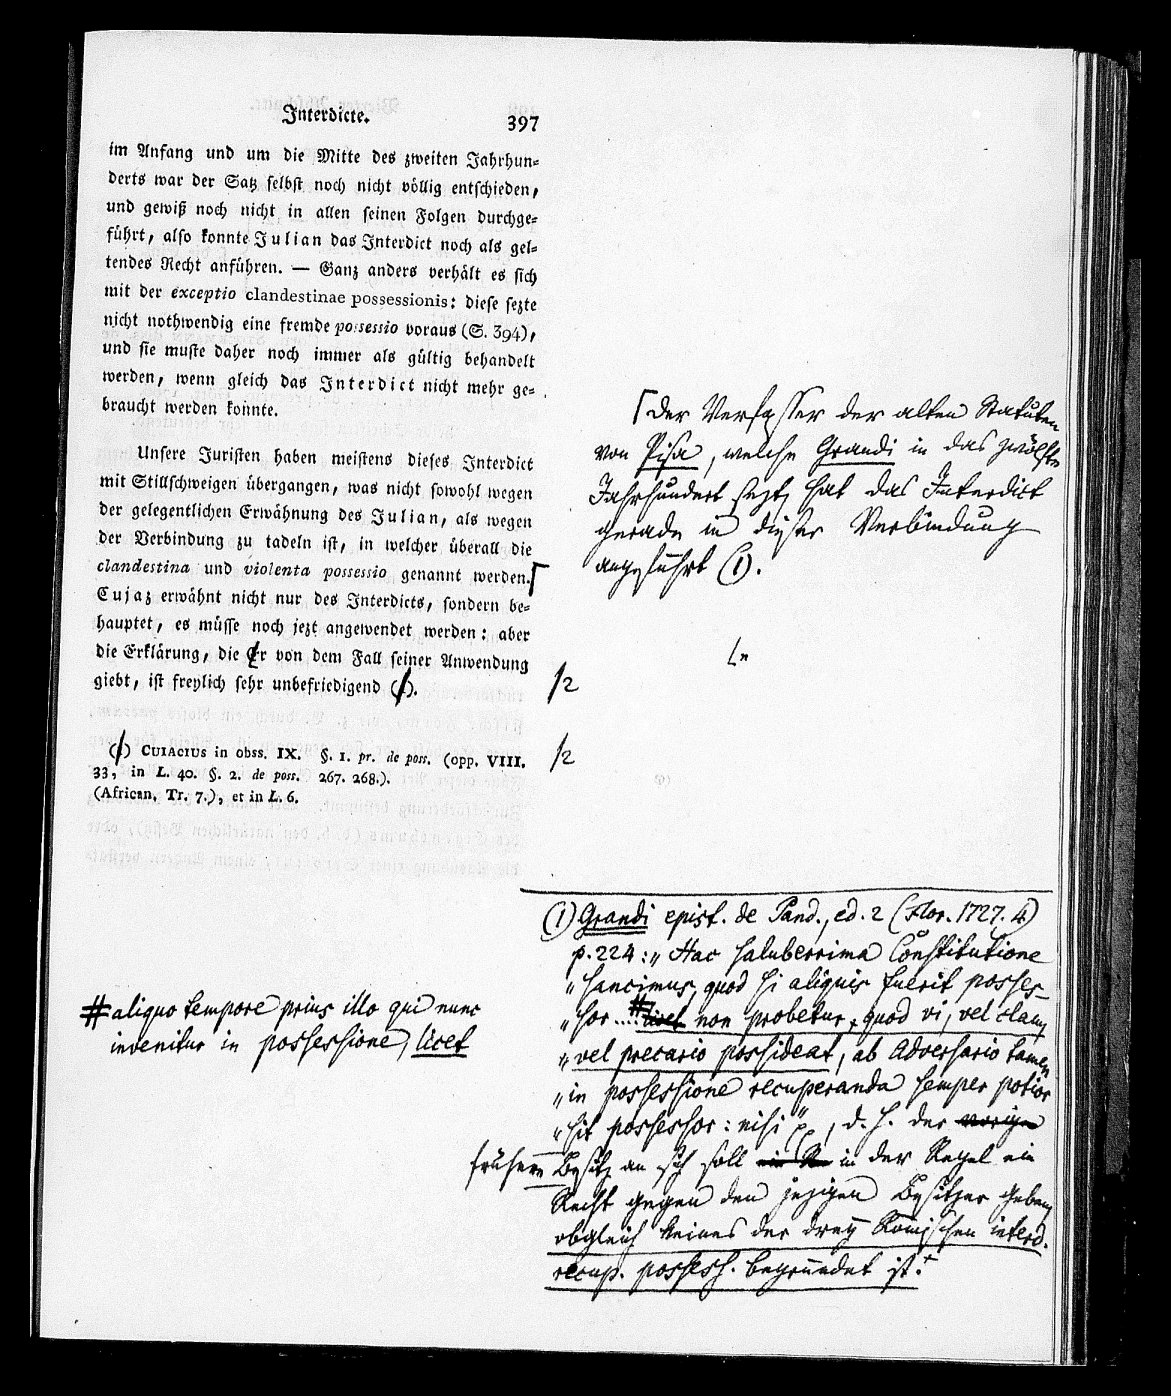 Interdicte.
397
im Anfang und um die Mitte des zweiten Jahrhun-
derts war der Satz selbst noch nicht völlig entschieden,
und gewiß noch nicht in allen seinen Folgen durchge-
führt, also konnte Julian das Interdict noch als gel-
tendes Recht anführen. — Ganz anders verhält es sich
mit der exceptio clandestinae possessionis: diese sezte
nicht nothwendig eine fremde possessio voraus (S. 394),
und sie muste daher noch immer als gültig behandelt
werden, wenn gleich das Interdict nicht mehr ge-
braucht werden konnte.
Unsere Juristen haben meistens dieses Interdict
mit Stillschweigen übergangen, was nicht sowohl wegen
der gelegentlichen Erwähnung des Julian, als wegen
der Verbindung zu tadeln ist, in welcher überall die
clandestina und violenta possessio genannt werden.⌈
Cujaz erwähnt nicht nur des Interdicts, sondern be-
hauptet, es müsse noch jezt angewendet werden: aber
die Erklärung, die Er von dem Fall seiner Anwendung
giebt, ist freylich sehr unbefriedigend (1).
/2
(1) CUIACIUS in obss. IX. §. 1. pr. de poss. (opp. VIII.
33, in L. 40. §. 2. de poss. 267. 268.).
(African. Tr. 7.), et in L. 6.
/2
⌈Der Verfasser der alten Statuten
von Pisa, welche Grandi in das zwölfte
Jahrhundert sezt, hat das Interdict
gerade in dieser Verbindung
angeführt (1).
(1) Grandi epist. de Pand., ed. 2 (Flor. 1727. 4)
p. 224: „Hac saluberrima Constitutione
„sancimus, quod si aliquis fuerit posses-
„sor ....# licet non probetur, quod vi, vel clam,
„vel precario possideat, ab Adversario tamen
„in possessione recuperanda semper potior
„sit possessor: nisi“, d. h. der vorige
frühere Besitz an sich soll in der Regel ein
Recht gegen den jezigen Besitzer geben,
obgleich keines der drey Römischen interd.
recup. possess. begründet ist.
# aliquo tempore prius illo qui nunc
invenitur in possessione, licet